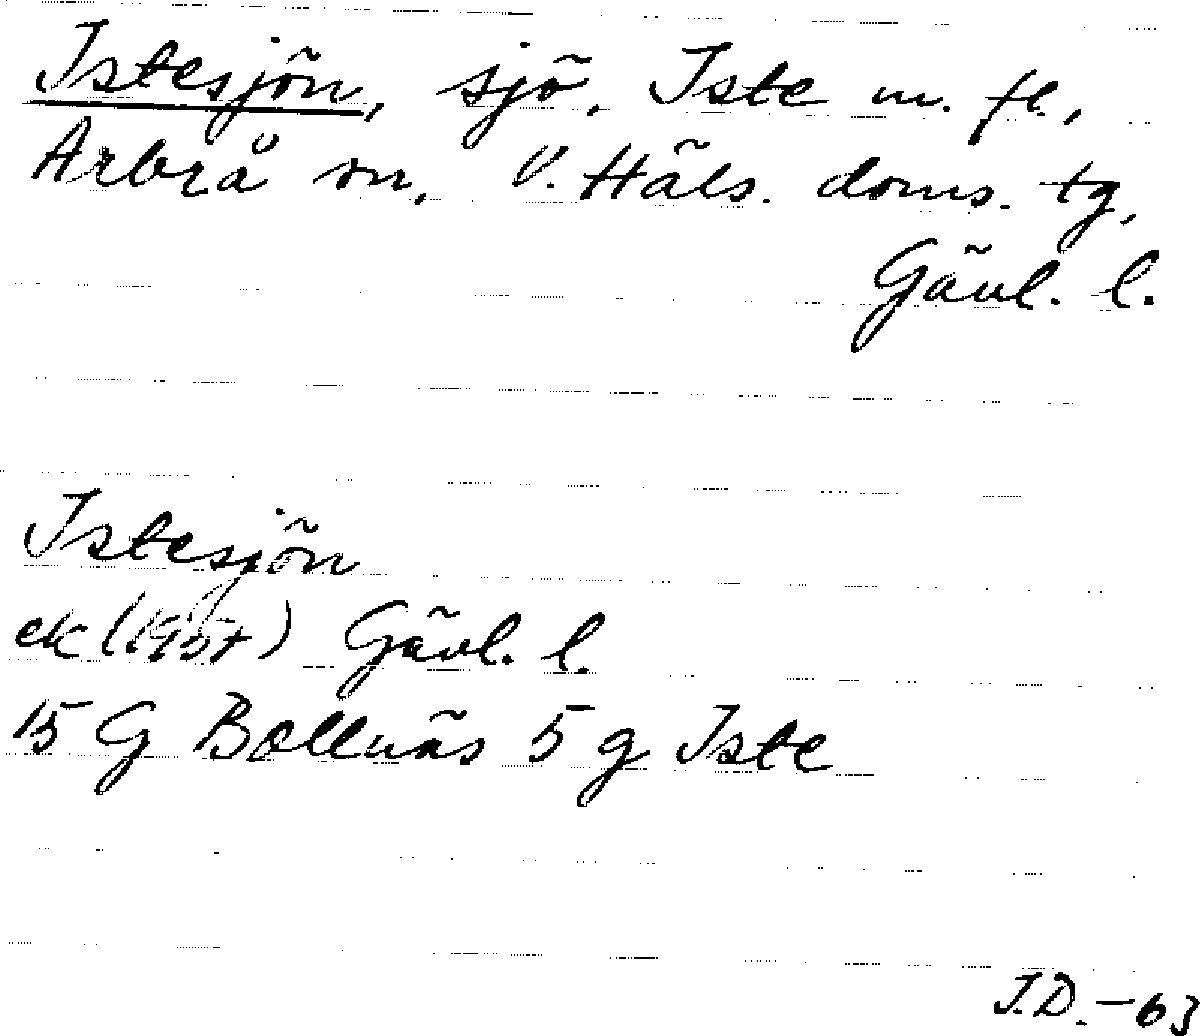 Istesjön, sjö, Iste m. fl.,
Arbrå sn, V. Häls. doms. tg,
Gävl. l.
Istesjön
ek (1957) Gävl. l.
15 G Bollnäs 5 g Iste
J.D. -63